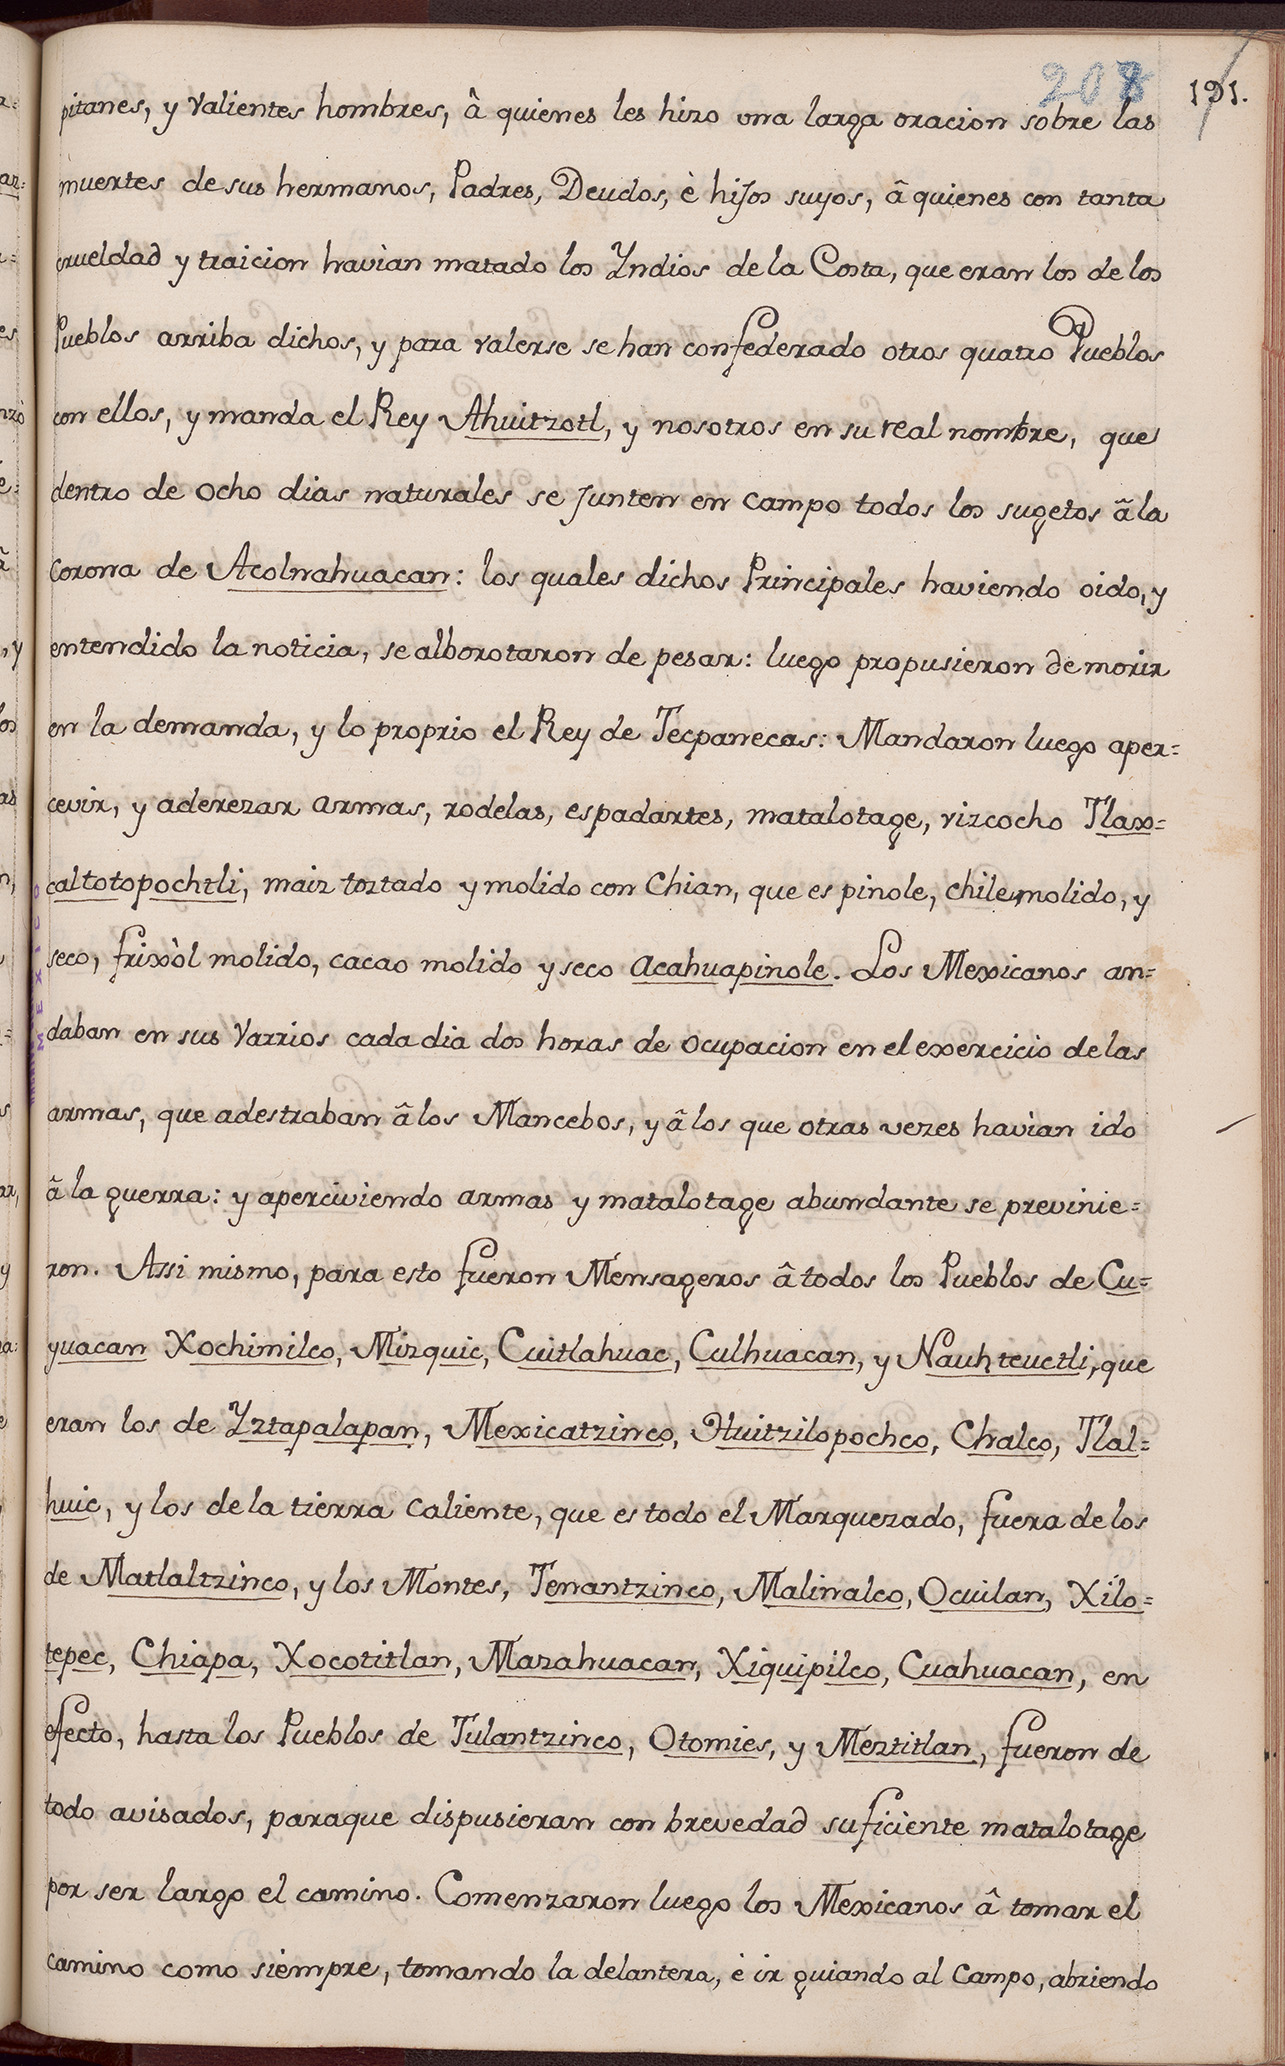 208 191.
pitanes, y Valientes hombres, â quienes les hizo una larga oracion sobre las
muertes de sus hermanos, Padres, Deudos, è hijos suyos, â quienes con tanta
crueldad y traicion havian matado los Yndios de la Costa, que eran los de los
Pueblos arriba dichos, y para valerse se han confederado otros quatro Pueblos
con ellos, y manda el Rey Ahuitzotl, y nosotros en su real nombre, que
dentro de ocho dias naturales se junten en campo todos los sugetos â la
corona de Acolnahuacan: los quales dichos Principales haviendo oido, y
entendido la noticia, se alborotaron de pesar: luego propusieron de morir
en la demanda, y lo proprio el Rey de Tecpanecas: Mandaron luego aper=
cevir, y aderezar armas, rodelas, espadartes, matalotage, vizcocho Tlax=
caltotopochtli, maiz tostado y molido con Chian, que es pinole, chile molido, y
seco, frixòl molido, cacao molido y seco acahuapinole. Los Mexicanos an=
daban en sus Varrios cada dia dos horas de ocupacion en el exercicio de las
armas, que adestraban â los Mancebos, y â los que otras vezes havian ido
â la guerra: y aperciviendo armas y matalotage abundante se previnie=
ron. Assi mismo, para esto fueron Mensageros â todos los Pueblos de Cu=
yuacan Xochimilco, Mizquic, Cuitlahuac, Culhuacan, y Nauhteuctli, que
eran los de Yztapalapan, Mexicatzinco, Huitzilopochco, Chalco, Tlal=
huic, y los de la tierra caliente, que es todo el Marquezado, fuera de los
de Matlaltzinco, y los Montes, Tenantzinco, Malinalco, Ocuilan, Xilo=
tepec, Chiapa, Xocotitlan, Mazahuacan, Xiquipilco, Cuahuacan, en
efecto, hasta los Pueblos de Tulantzinco, Otomies, y Meztitlan, fueron de
todo avisados, paraque dispusieran con brevedad suficiente matalotage
por ser largo el camino. Comenzaron luego los Mexicanos â tomar el
camino como siempre, tomando la delantera, è ir guiando al Campo, abriendo
MEXICO